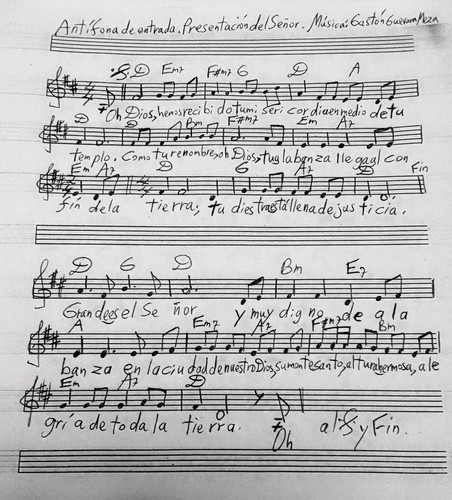 Antífona de entrada. Presentación del Señor. Música: Gastón Guevara Meza
D Em7 F#m7 G D A
Oh Dios, hemos recibido tu misericordia en medio de tu
D D Bm F#m7 Em A7
templo. Como tu renombre, oh Dios, tu alabanza llega al con
Em A7 D G A7 D Fin
fín de la tierra; tu diestra está llena de justicia.
D G D Bm E7
Grande es el Señor y muy digno de ala
A Em7 A7 F#m7 Bm
banza en la ciudad de nuestro Dios, su monte santo, altura hermosa, ale
Em A7 D
gría de toda la tierra. Oh al 𝄋 y Fin.